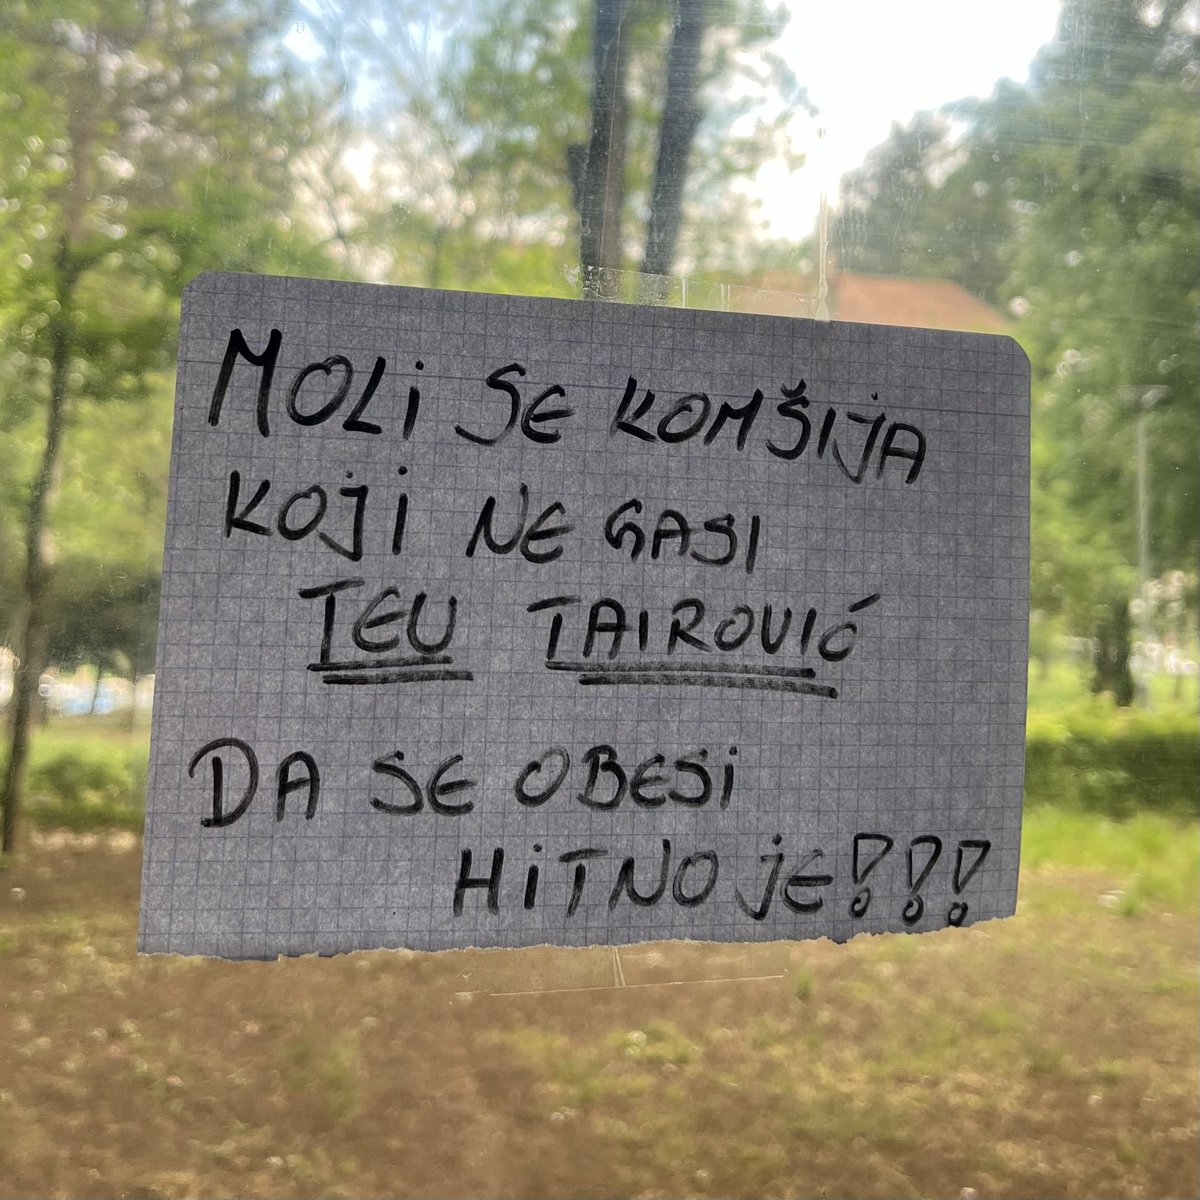 MOLI SE KOMŠIJA
KOJI NE GASI
TEU TAIROVIĆ
DA SE OBESI
HITNO JE!!!